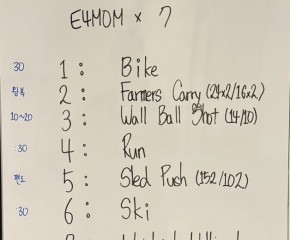 E4MOM × 7
:30 1 : Bike
왕복 2 : Farmers Carry (24x2/16x2)
10~20 3 : Wall Ball Shot (14/10)
:30 4 : Run
편도 5 : Sled Push (152/102)
:30 6 : Ski